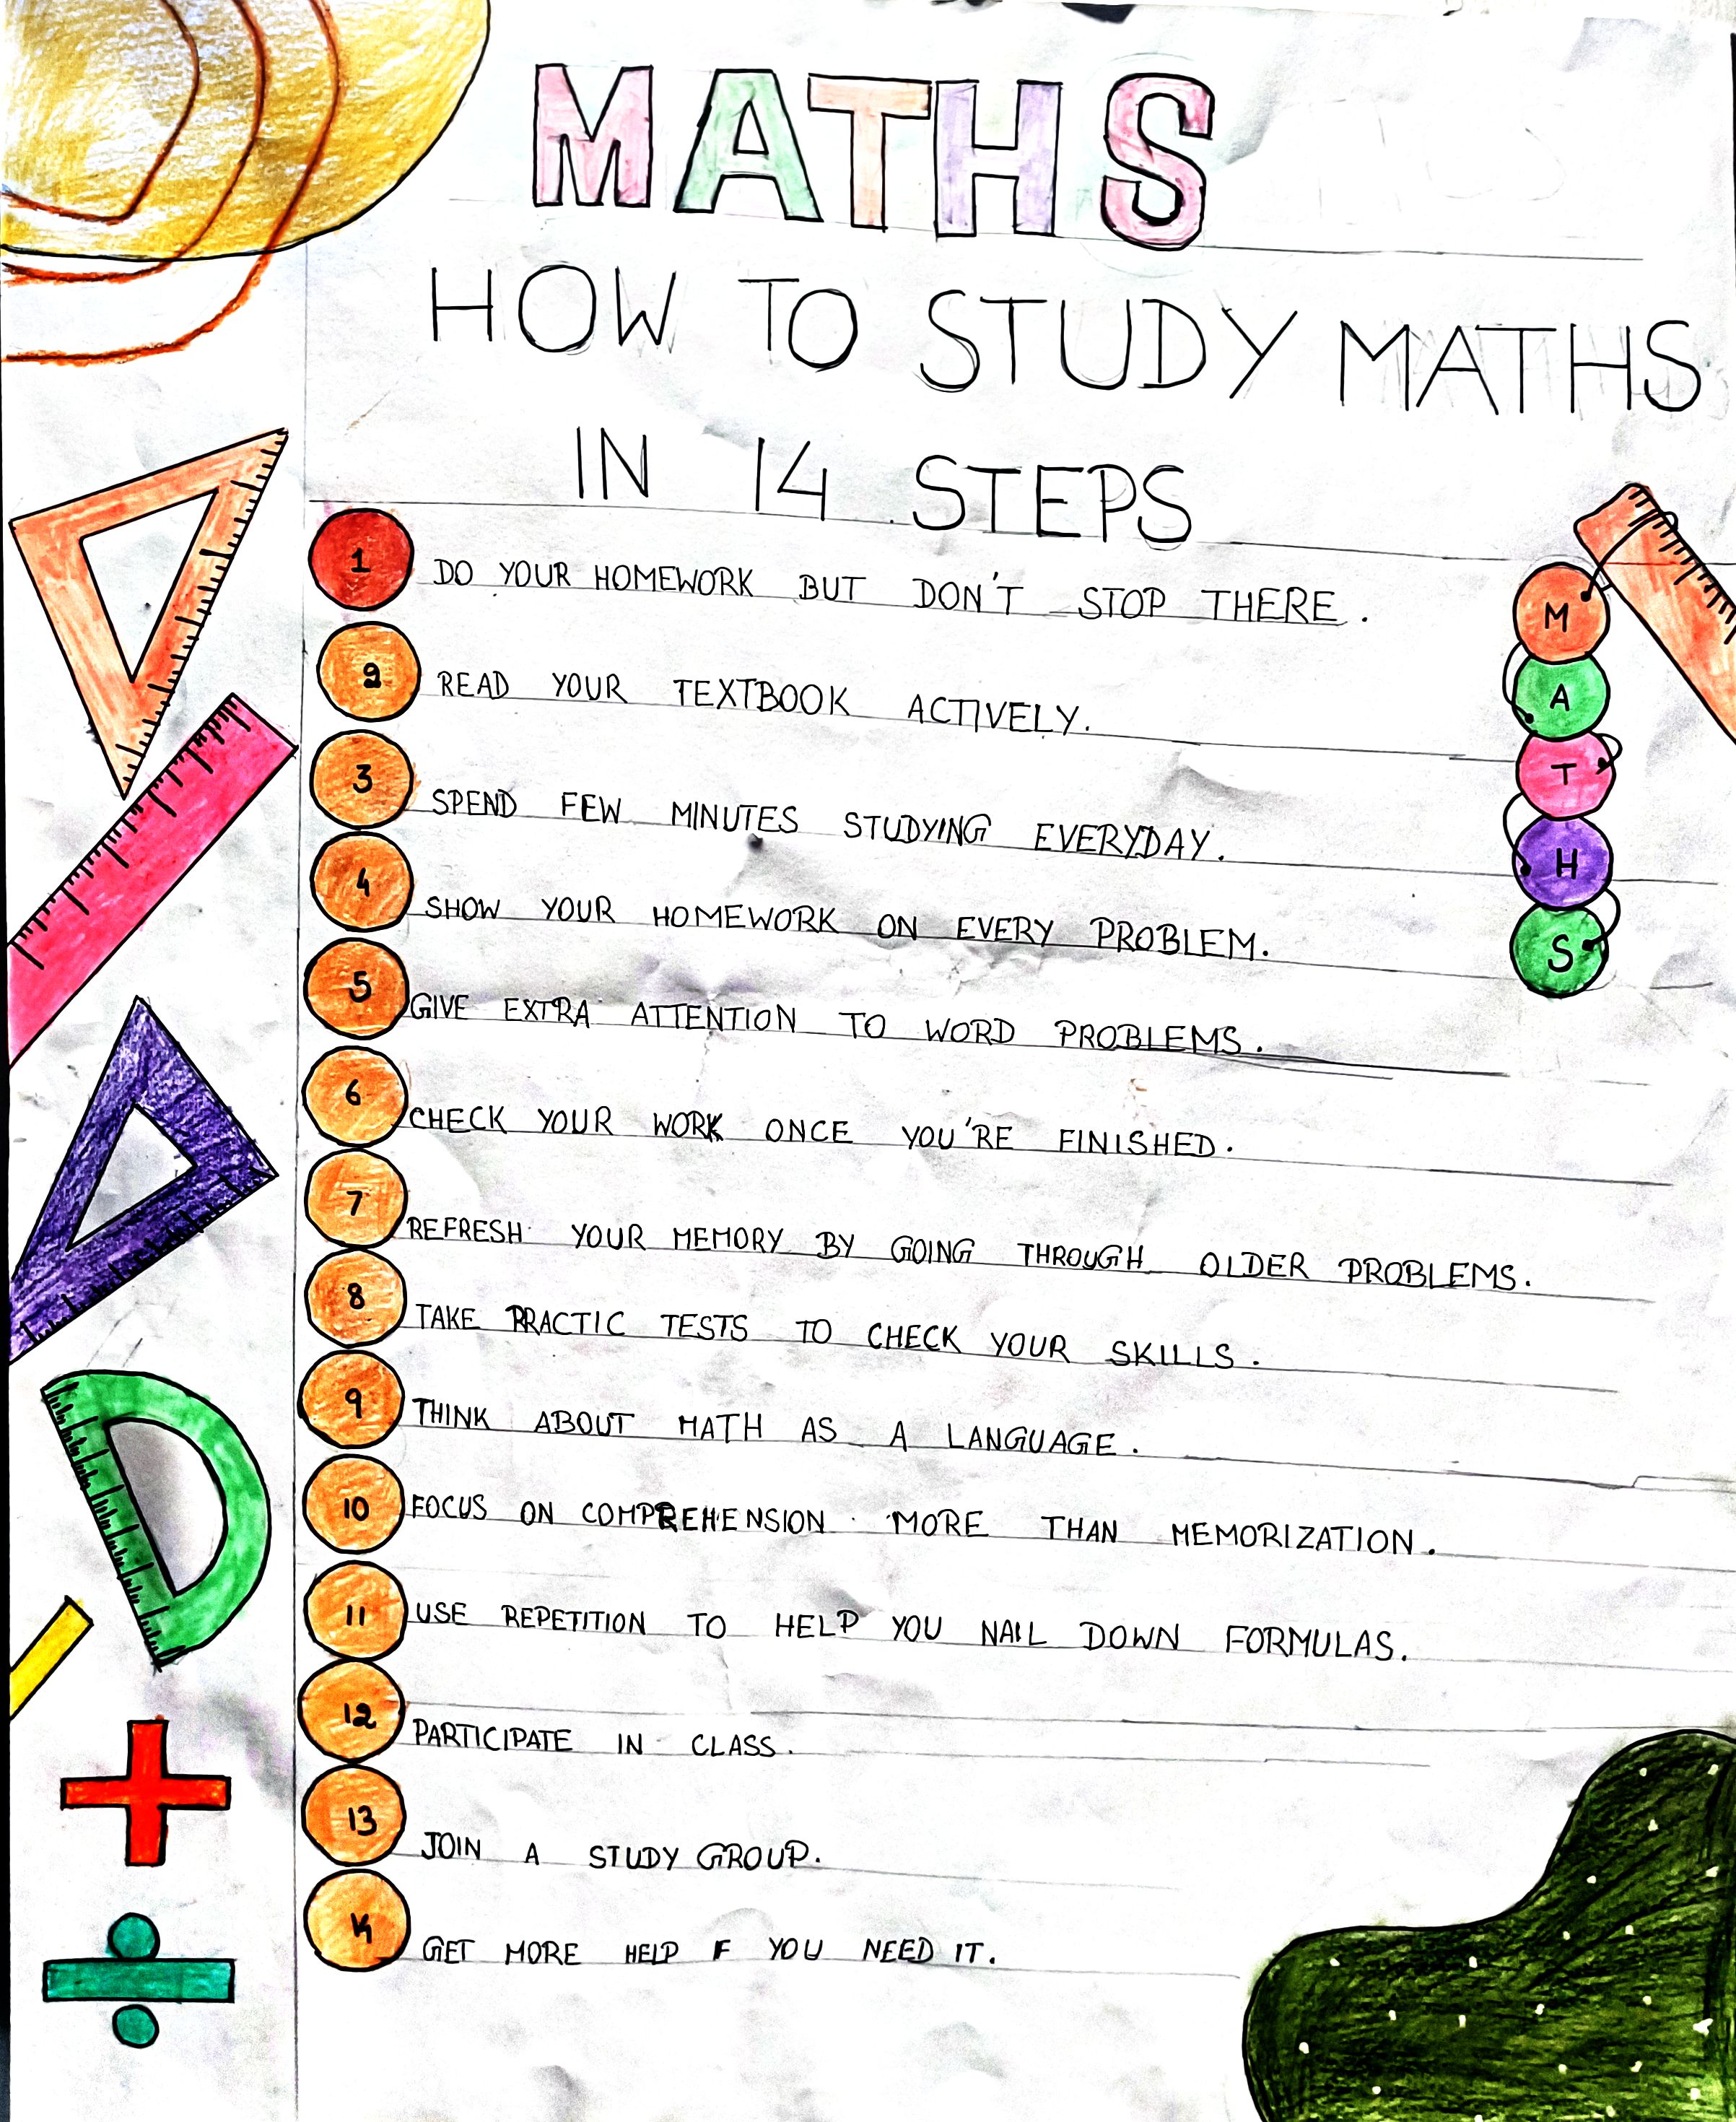 MATHS
HOW TO STUDY MATHS
IN 14 STEPS
1 DO YOUR HOMEWORK BUT DON'T STOP THERE.
2 READ YOUR TEXTBOOK ACTIVELY.
3 SPEND FEW MINUTES STUDYING EVERYDAY.
4 SHOW YOUR HOMEWORK ON EVERY PROBLEM.
5 GIVE EXTRA ATTENTION TO WORD PROBLEMS.
6 CHECK YOUR WORK ONCE YOU'RE FINISHED.
7 REFRESH YOUR MEMORY BY GOING THROUGH OLDER PROBLEMS.
8 TAKE PRACTIC TESTS TO CHECK YOUR SKILLS.
9 THINK ABOUT MATH AS A LANGUAGE.
10 FOCUS ON COMPREHENSION MORE THAN MEMORIZATION.
11 USE REPETITION TO HELP YOU NAIL DOWN FORMULAS.
12 PARTICIPATE IN CLASS.
13 JOIN A STUDY GROUP.
14 GET MORE HELP F YOU NEED IT.
M
A
T
H
S